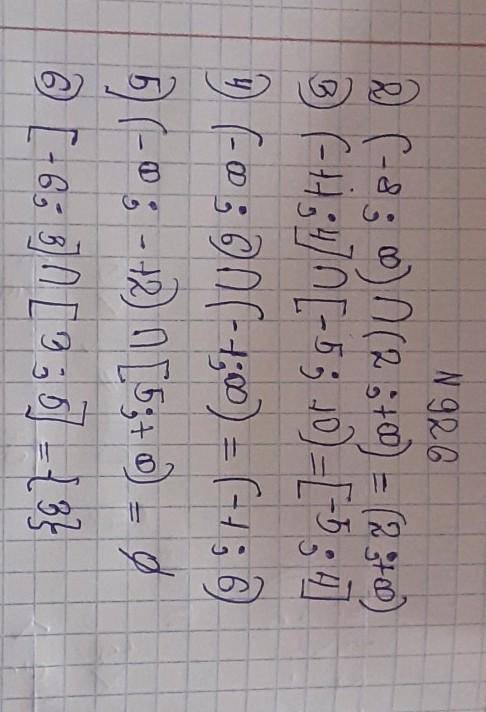 N 926
2) (-8; ∞) ∩ (2; +∞) = (2; +∞)
3) (-11; 4] ∩ [-5; 10) = [-5; 4]
4) (-∞; 6) ∩ (-1; ∞) = (-1; 6)
5) (-∞; -12) ∩ [5; +∞) = ∅
6) [-6; 3] ∩ [3; 5] = {3}